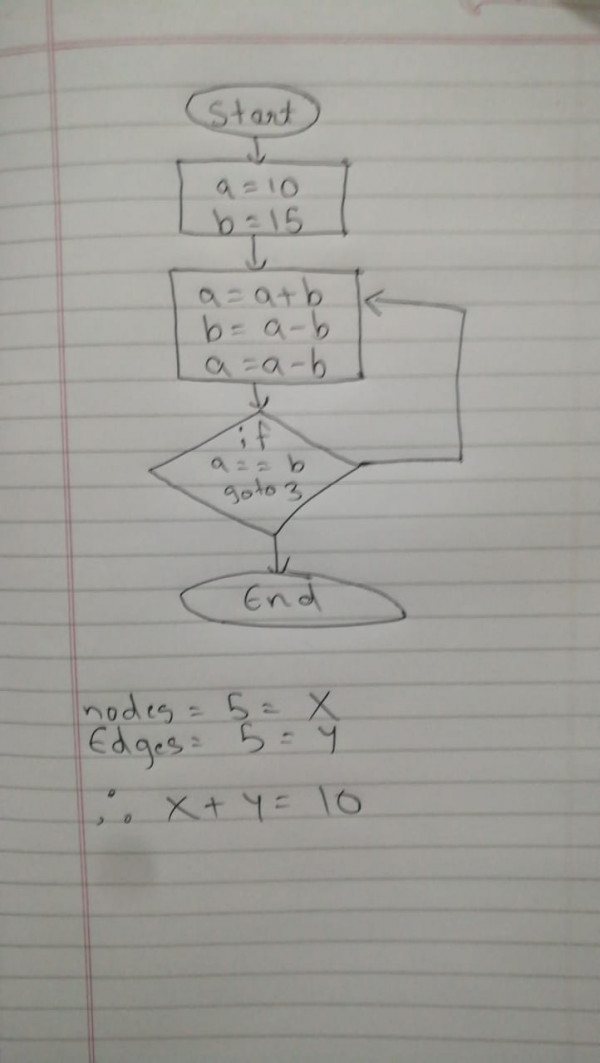 Start
a = 10
b = 15
a = a + b
b = a - b
a = a - b
if
a == b
goto 3
End
nodes = 5 = X
Edges = 5 = Y
∴ X + Y = 10